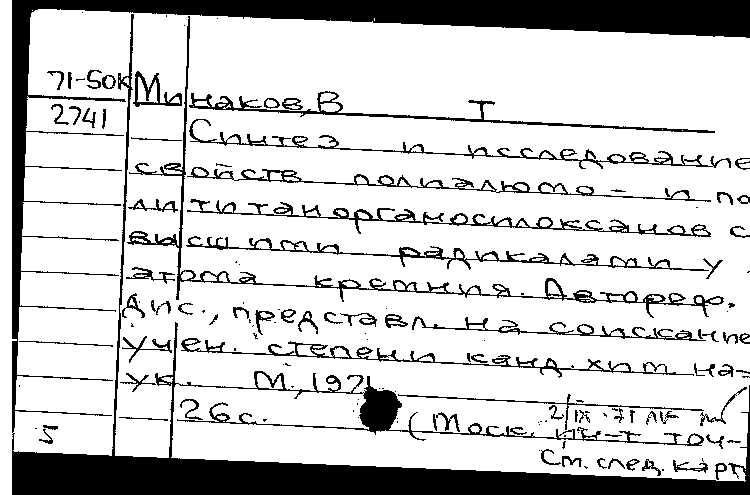 71-50к Минаков, В Т
2741
Синтез и исследование
свойств полиалюмо- и по
лититанорганосилоксанов с
высшими радикалами у
атома кремния. Автореф.
дис., представл. на соискание
учен. степени канд. хим. на-
ук. М., 1971
26с. (Моск. ин-т тон-
2/IX-71
5 См. след. карт